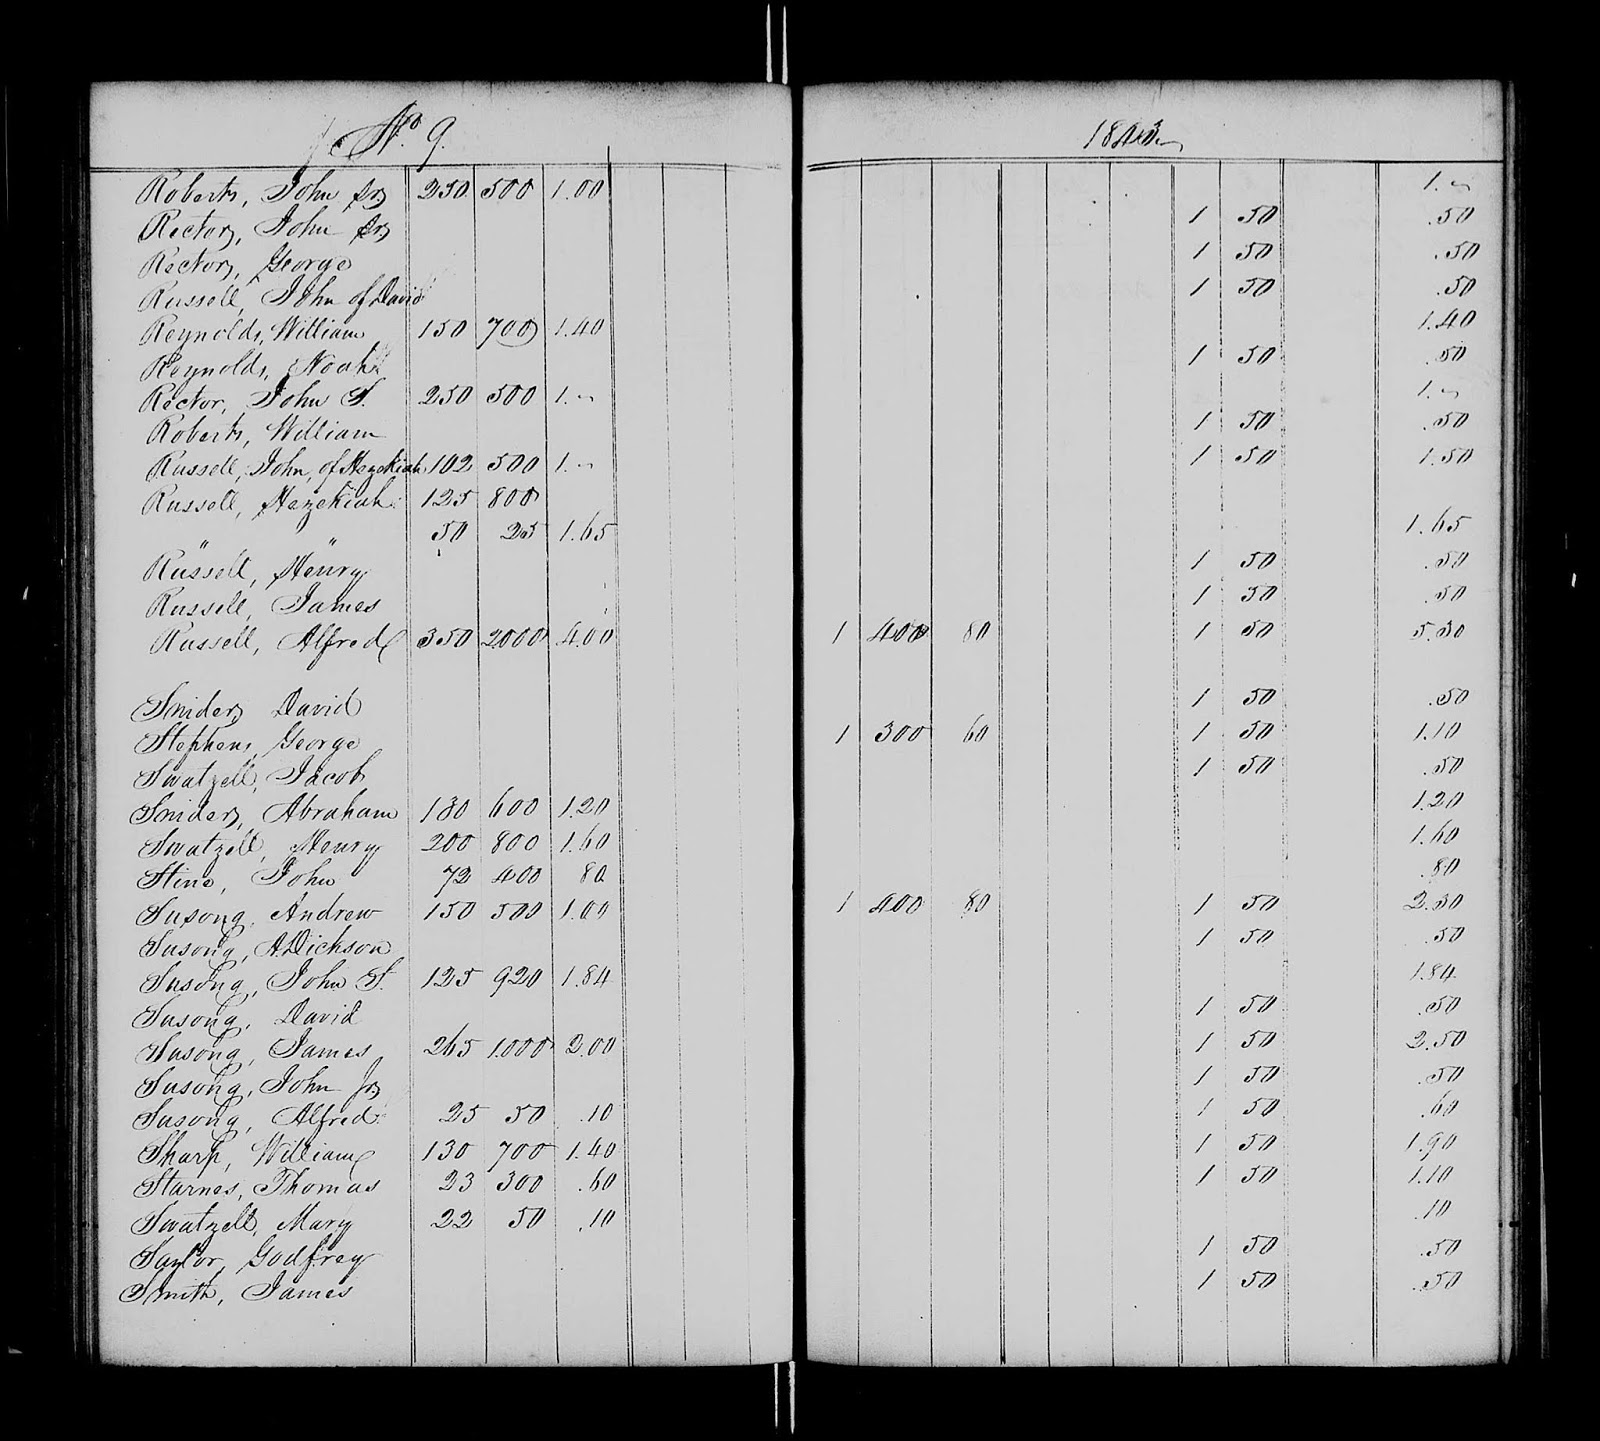 No. 9. 18
Roberts, John Sr 250 500 1.00 1.~
Rector, John Sr 1 50 .50
Rector, George 1 50 .50
Russell, John of David 1 50 .50
Reynolds, William 150 700 1.40 1.40
Reynolds, Noah 1 50 .50
Rector, John S. 250 500 1.~ 1.~
Roberts, William 1 50 .50
Russell, John, of Hezekiah 102 500 1.~ 1 50 1.50
Russell, Hezekiah 125 800
" " 50 25 1.65 1.65
Russell, Henry 1 50 .50
Russell, James 1 50 .50
Russell, Alfred 350 2000 4.00 1 400 80 1 50 5.30
Snider, David 1 50 .50
Stephens, George 1 300 60 1 50 1.10
Swatzell, Jacob 1 50 .50
Snider, Abraham 130 600 1.20 1.20
Swatzell, Henry 200 800 1.60 1.60
Stine, John 72 400 80 .80
Susong, Andrew 150 500 1.00 1 400 80 1 50 2.30
Susong, A. Dickson 1 50 .50
Susong, John S. 125 920 1.84 1.84
Susong, David 1 50 .50
Susong, James 265 1.000 2.00 1 50 2.50
Susong, John Jr 1 50 .50
Susong, Alfred 25 50 .10 1 50 .60
Sharp, William 130 700 1.40 1 50 1.90
Starnes, Thomas 23 300 .60 1 50 1.10
Swatzell, Mary 22 50 .10 .10
Saylor, Godfrey 1 50 .50
Smith, James 1 50 .50